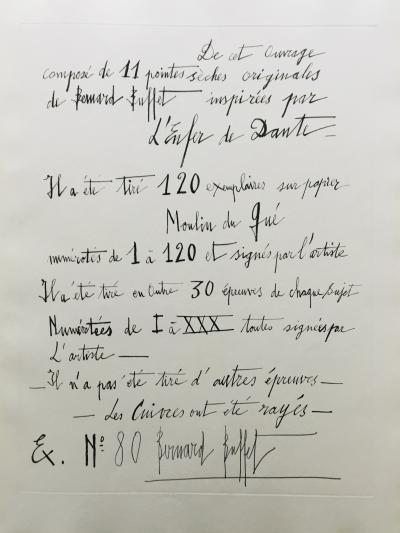 De cet Ouvrage
composé de 11 pointes sèches originales
de Bernard Buffet inspirées par
L'Enfer de Dante _
Il a été tiré 120 exemplaires sur papier
Moulin du Gué
numérotés de 1 à 120 et signés par l'artiste
Il a été tiré en outre 30 épreuves de chaque sujet
Numérotées de I à XXX toutes signées par
L'artiste —
— Il n'a pas été tiré d'autres épreuves —
— Les Cuivres ont été rayés —
Ex. Nº 80 Bernard Buffet